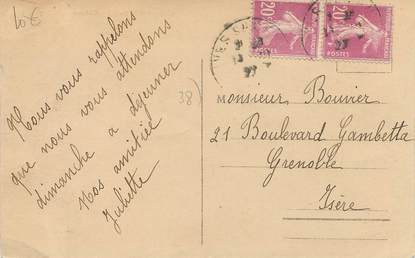 10€
Nous vous rappelons
que nous vous attendons
dimanche a déjeuner
Nos amitiés
Juliette
38)
Monsieur Bouvier
21 Boulevard Gambetta
Grenoble
Isère
20c
20c